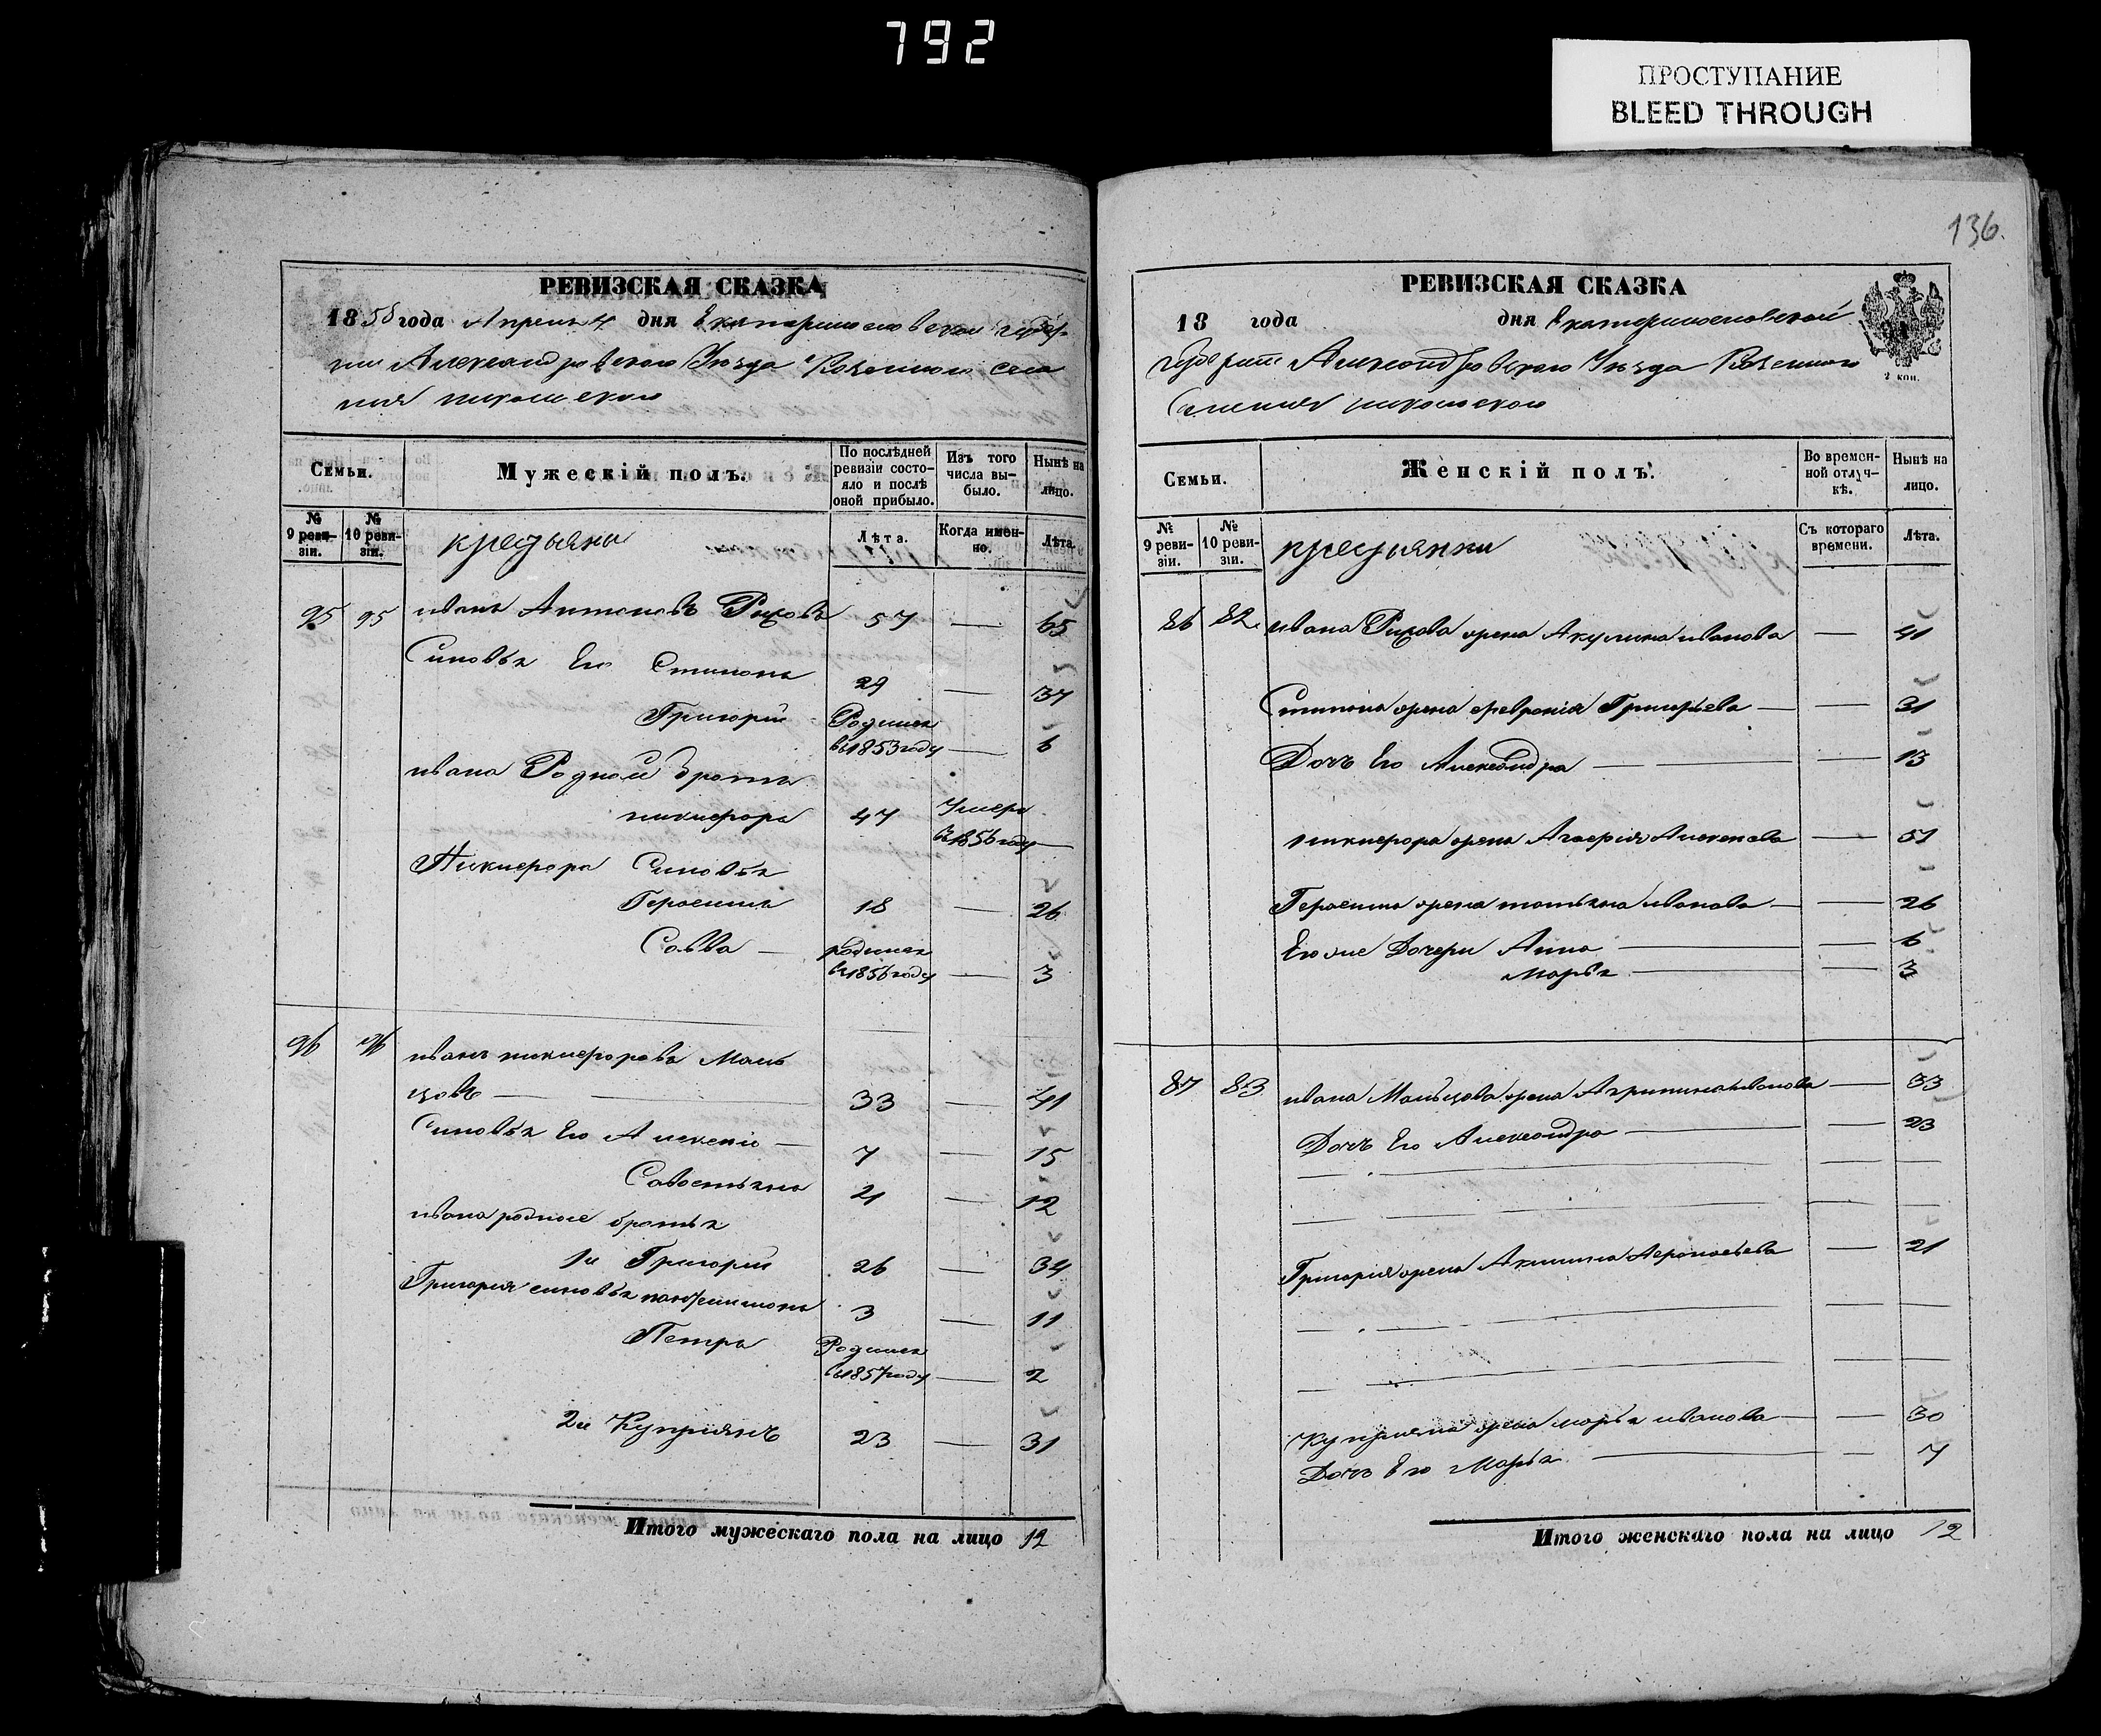 792
ПРОСТУПАНИЕ
BLEED THROUGH
136.
РЕВИЗСКАЯ СКАЗКА
1858 года Апреля 4 дня Екатеринославской губер
нии Александровского Уезда Казенного селе
ния
Семьи.
Мужескій полъ.
По послѣдней ревизіи состояло и послѣ оной прибыло.
Изъ того числа выбыло.
Нынѣ на лицо.
№ 9 ревизіи.
№ 10 ревизіи.
крестьяне
Лѣта.
Когда именно.
Лѣта.
95 95 иванъ Антоновъ 57 — 65
Синовья Его Степанъ 29 — 37
Григорій Родился
въ 1853 году — 6
ивана Родной братъ
никифоръ 47 Умеръ
въ 1856 году —
Никифора Синовья
Герасимъ 18 — 26
Савва — родился
въ 1856 году — 3
96 96 иванъ никифоровъ Маль
цовъ — 33 — 41
Синовья Его Алексей — 7 — 15
Савостьянъ 4 — 12
ивана родные братья
1й Григорій 26 — 34
Григория синовья пантилимонъ 3 — 11
Петръ Родился
въ 1857 году — 2
2й Куприянъ 23 — 31
Итого мужескаго пола на лицо 12
РЕВИЗСКАЯ СКАЗКА
18 года дня Екатеринославской
губернии Александровского Уезда Казенного
Селения
2 коп.
Семьи.
Женскій полъ.
Во временной отлучкѣ.
Нынѣ на лицо.
№ 9 ревизіи.
№ 10 ревизіи.
крестьянки
Съ котораго времени.
Лѣта.
86 82 ивана жена Акулина иванова — 41
Степана жена Григорьева — 31
Дочь Его Александра — 13
никифора жена — 51
Герасима жена татьяна иванова — 26
Его же Дочери Анна — 6
Марья — 3
87 83 ивана Мальцова жена Агрипина иванова — 33
Дочь Его Александра — 23
Григория жена Акилина — 21
Куприяна жена марья иванова — 30
Дочь Его Марья — 7
Итого женскаго пола на лицо 12